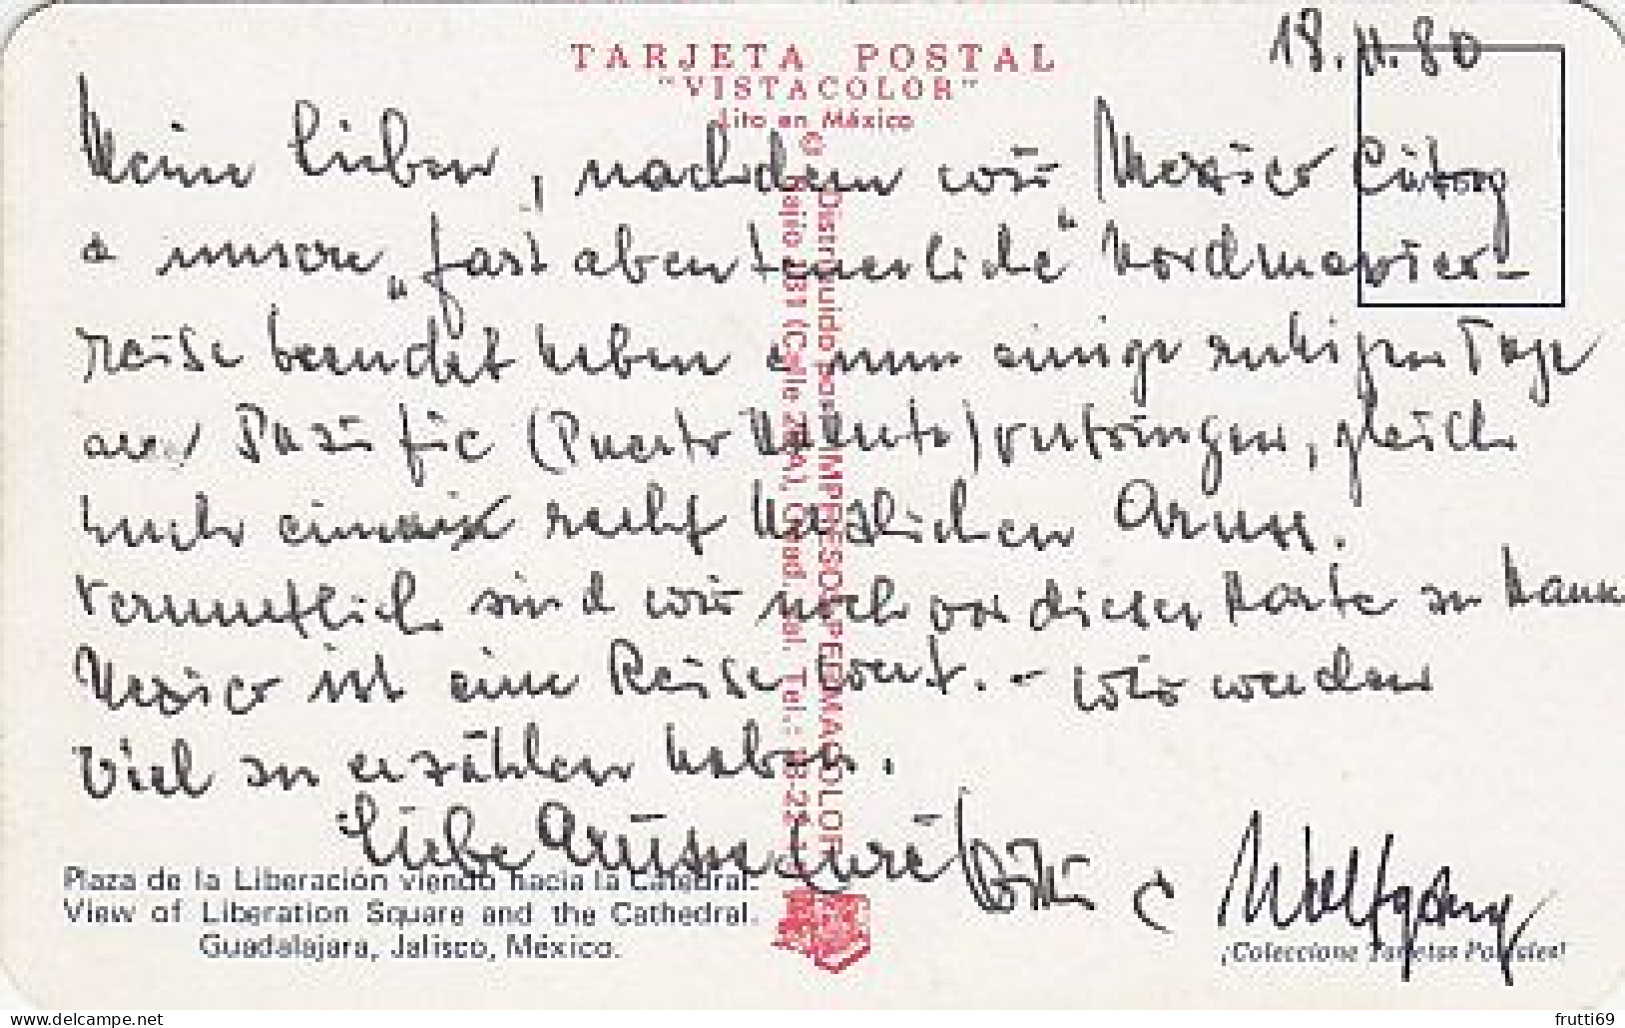 18.11.80
TARJETA POSTAL
"VISTACOLOR"
Lito en México
Meine Lieben, nachdem wir Mexico City
& unsere „fast abenteuerliche" Nordmexico-
reise beendet haben & nun einige ruhige Tage
am Pazific (Puerto Vallarta) verbringen, gleich
noch einmal recht herzlichen Gruss.
Vermutlich sind wir noch vor dieser Karte zu Haus
Mexico ist eine Reise wert. - Wir werden
viel zu erzählen haben.
Liebe Grüsse Eure
& Wolfgang
© Distribuido por IMPRESOS PERMACOLOR
Bajio (Calle Guad. Jal. Tel.:
Plaza de la Liberación viendo hacia la Catedral.
View of Liberation Square and the Cathedral.
Guadalajara, Jalisco, México.
¡Coleccione Tarjetas Postales!
delcampe.net
frutti69